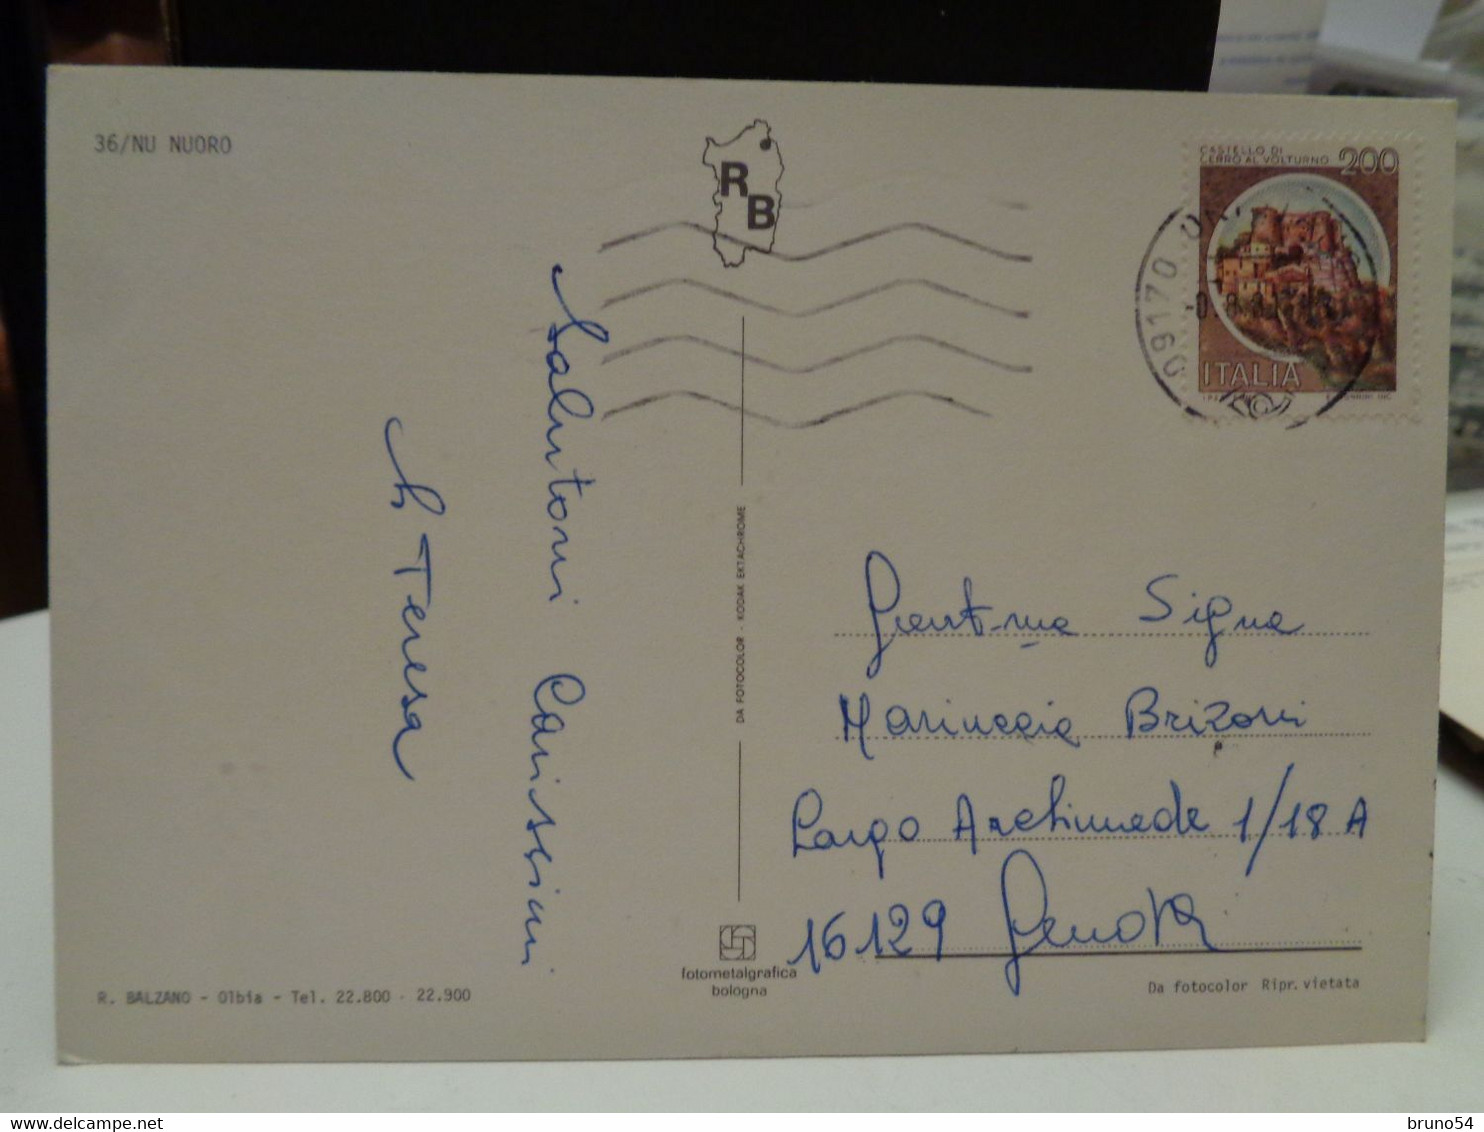 36/NU NUORO
R
B
CASTELLO DI
CERRO AL VOLTURNO 200
ITALIA
09170
Salutoni Carissimi
Teresa
DA FOTOCOLOR - KODAK EKTACHROME
Gent.ma Sig.na
Mariuccia Brizoni
Largo Archimede 1/18 A
16129 Genova
fotometalgrafica
bologna
R. BALZANO - Olbia - Tel. 22.800 - 22.900
Da fotocolor Ripr. vietata
bruno54